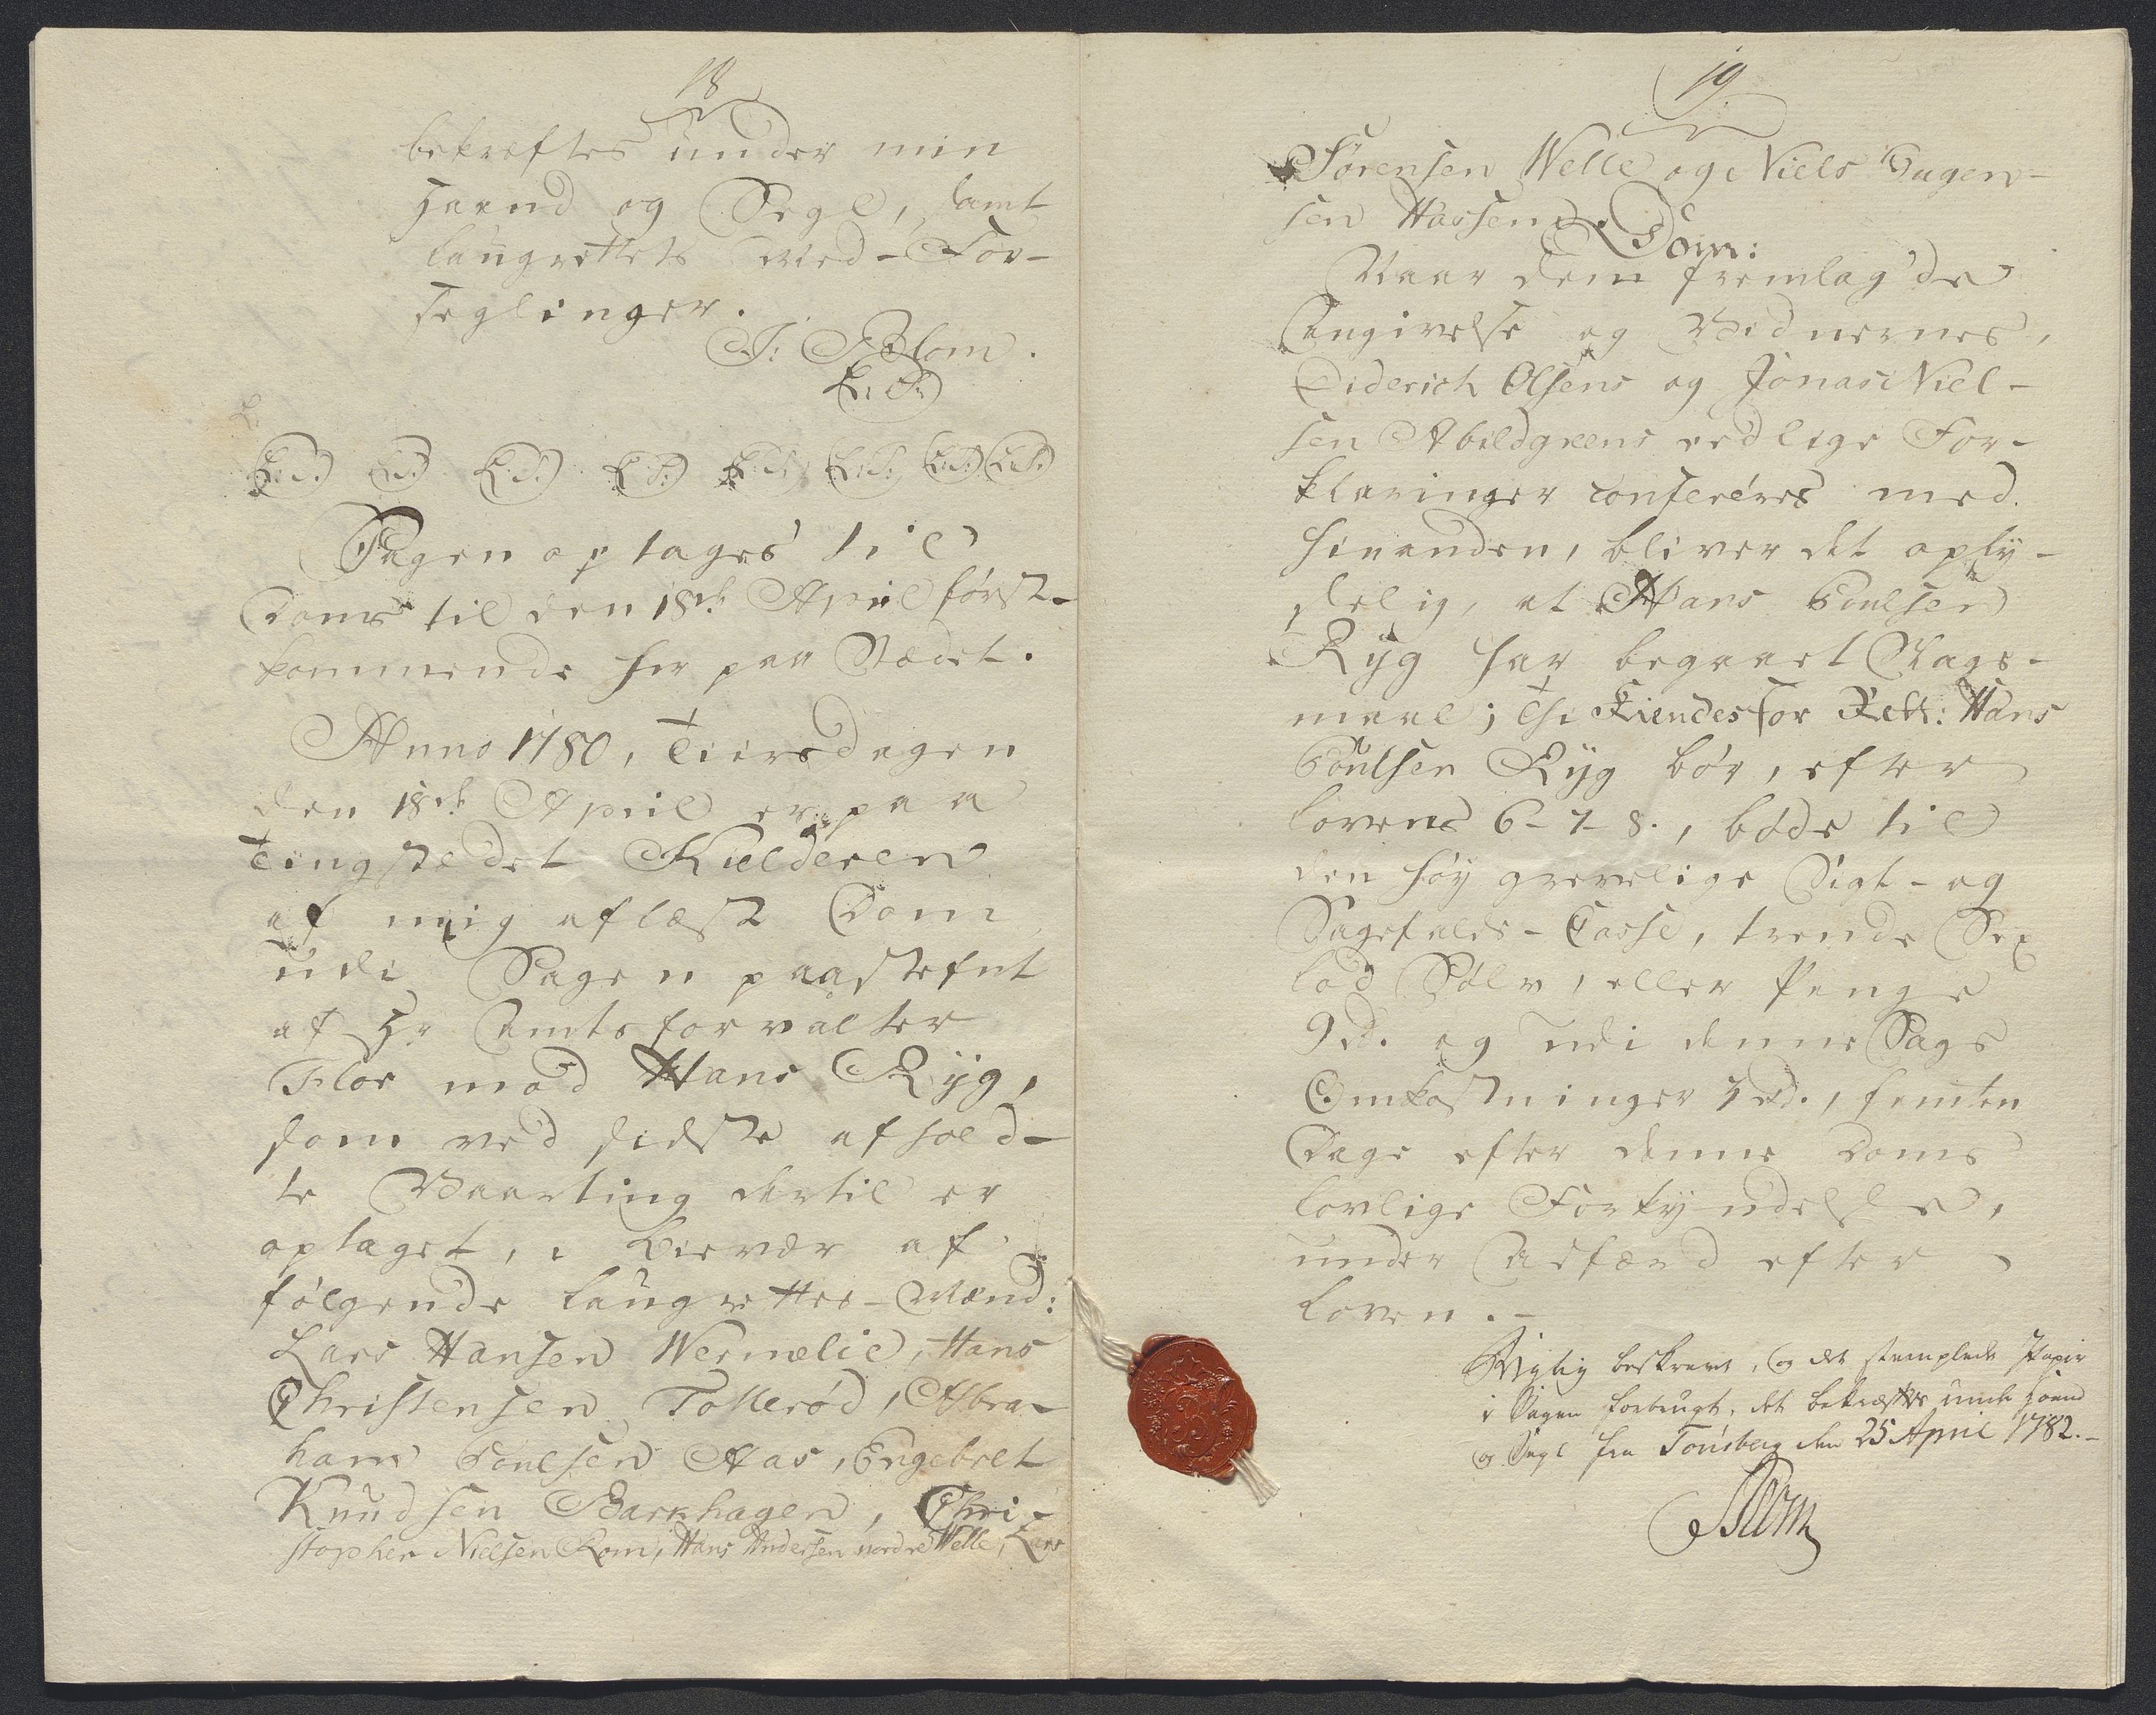 18
bekræftes under min
Haand og Segl, samt
Laugrettets Med-For-
seglinger.
J: Blom.
(L:S:)
(L:S:) (L:S:) (L:S:) (L:S:) (L:S:) (L:S:) (L:S:) (L:S:)
Sagen optages til
Doms til den 18de April først-
kommende her paa Stædet.
Anno 1780, Tiersdagen
den 18de April er paa
Tingstedet Kielderen
af mig aflæst Dom
udi Sagen paastefnt
af Hr Amtsforvalter
Flor mod Hans Ryg,
som ved sidste afhold-
te Vaarting dertil er
optaget, i Overvær af
følgende Laugrettes-Mænd:
Lars Hansen Wermelie, Hans
Christensen Tollerød, Abra-
ham Poulsen Aas, Engebret
Knudsen Barkhagen, Chri-
stopher Nielsen Rom, Hans Andersen nordre Welle, Lars
19
Sørensen Welle og Niels
sen Hassen.
Dom:
Naar den fremlagde
Angivelse og Vidnernes,
Diderich Olsens og Jonas Niel-
sen Abildgreens eedlige For-
klaringer confereres med
hinanden, bliver det opty-
delig, at Hans Poulsen
Ryg har begaaet Slags-
maal; thi Kiendes for Rett: Hans
Poulsen Ryg bør, efter
Lovens 6-7-8., bøde til
den høy grevelige Sigt- og
Sagefalds-Casse, trende Sex
Lod Sølv, eller Penge
9rd. og udi denne Sags
Omkostninger 7rd., femten
Dage efter denne Doms
lovlige Forkyndelse,
under Adfærd efter
Loven.-
Rigtig beskrevet, og det stemplede Papir
i Sagen forbrugt, det bekræftes under Haand
og Segl fra Tønsberg den 25 April 1782.-
JBlom